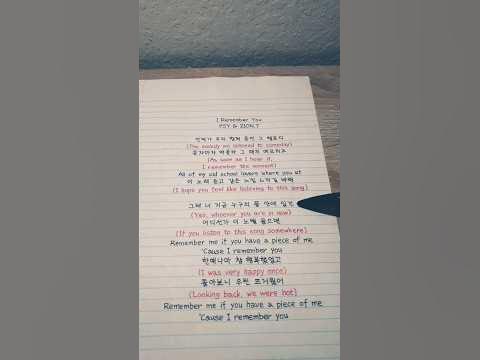 I Remember You
PSY & ZION.T
언젠가 우리 함께 듣던 그 멜로디
(The melody we listened to someday)
듣자마자 떠올라 그 때의 여모리즈
(As soon as I hear it,
I remember the moment)
All of my old school lovers where you at
이 노래 듣고 같은 느낌 느끼길 바래
(I hope you feel like listening to this song)
그래 너 지금 누구의 품 안에 있건
(Yes, whoever you are in now)
어디선가 이 노랠 들으면
(If you listen to this song somewhere)
Remember me if you have a piece of me
'Cause I remember you
한때나마 참 행복했었고
(I was very happy once)
돌아보니 우린 뜨거웠어
(Looking back, we were hot)
Remember me if you have a piece of me
'Cause I remember you